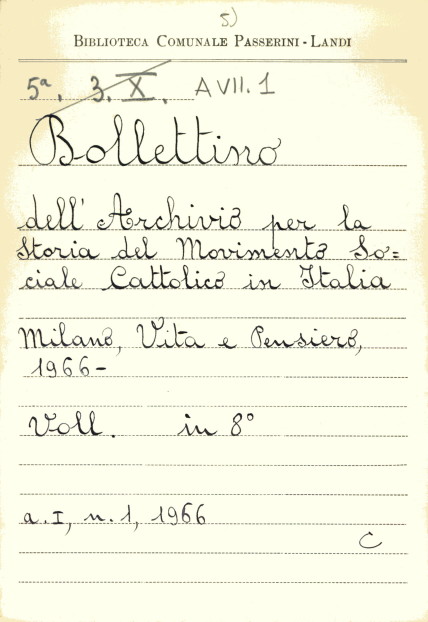 5)
BIBLIOTECA COMUNALE PASSERINI-LANDI
5ª. 3. X. A VII. 1
Bollettino
dell'Archivio per la
Storia del Movimento So=
ciale Cattolico in Italia
Milano, Vita e Pensiero,
1966-
Voll. in 8°
a. I, n. 1, 1966
C